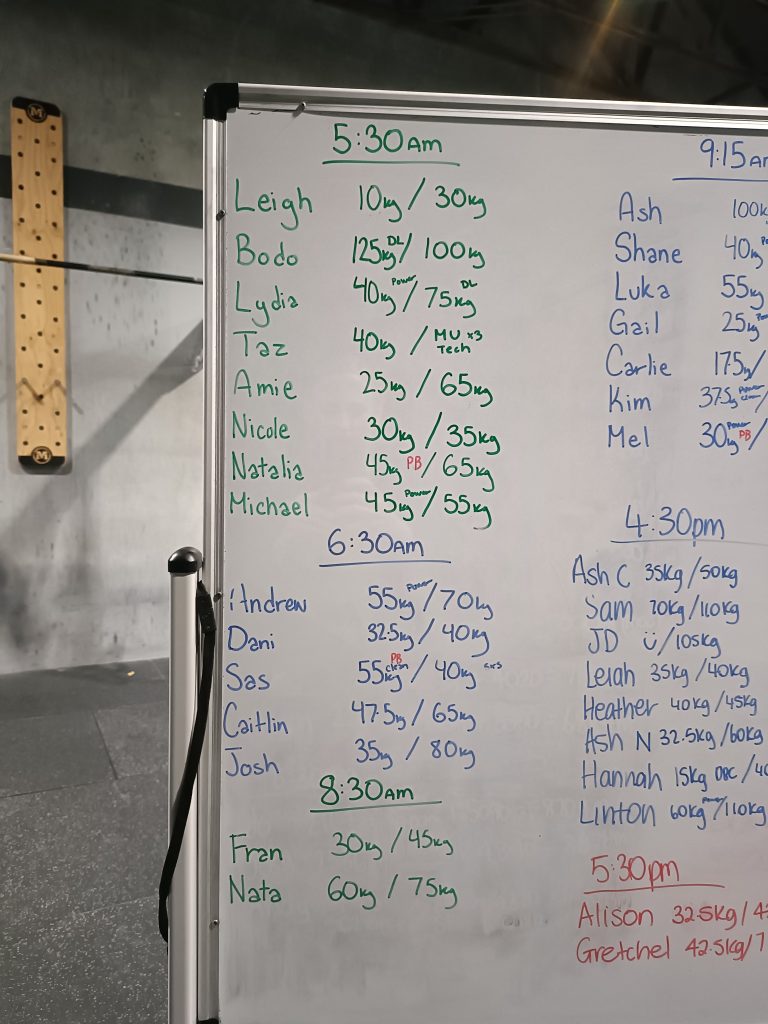 5:30AM
Leigh 10kg / 30kg
Bodo 125kg DL / 100kg
Lydia 40kg Power / 75kg DL
Taz 40kg / MU x3 Tech
Amie 25kg / 65kg
Nicole 30kg / 35kg
Natalia 45kg PB / 65kg
Michael 45kg Power / 55kg
6:30AM
Andrew 55kg Power / 70kg
Dani 32.5kg / 40kg
Sas 55kg PB clean / 40kg
Caitlin 47.5kg / 65kg
Josh 35kg / 80kg
8:30AM
Fran 30kg / 45kg
Nata 60kg / 75kg
9:15Am
Ash 100k
Shane 40kg
Luka 55kg
Gail 25kg
Carlie 17.5kg /
Kim 37.5kg Power clean /
Mel 30kg Power PB /
4:30pm
Ash C 35kg/50kg
Sam 70kg/110kg
JD Ü/105kg
Leigh 35kg/40kg
Heather 40kg/45kg
Ash N 32.5kg/60kg
Hannah 15kg DBC /40
Linton 60kg Power /110kg
5:30pm
Alison 32.5kg/4
Gretchel 42.5kg/7
M
M